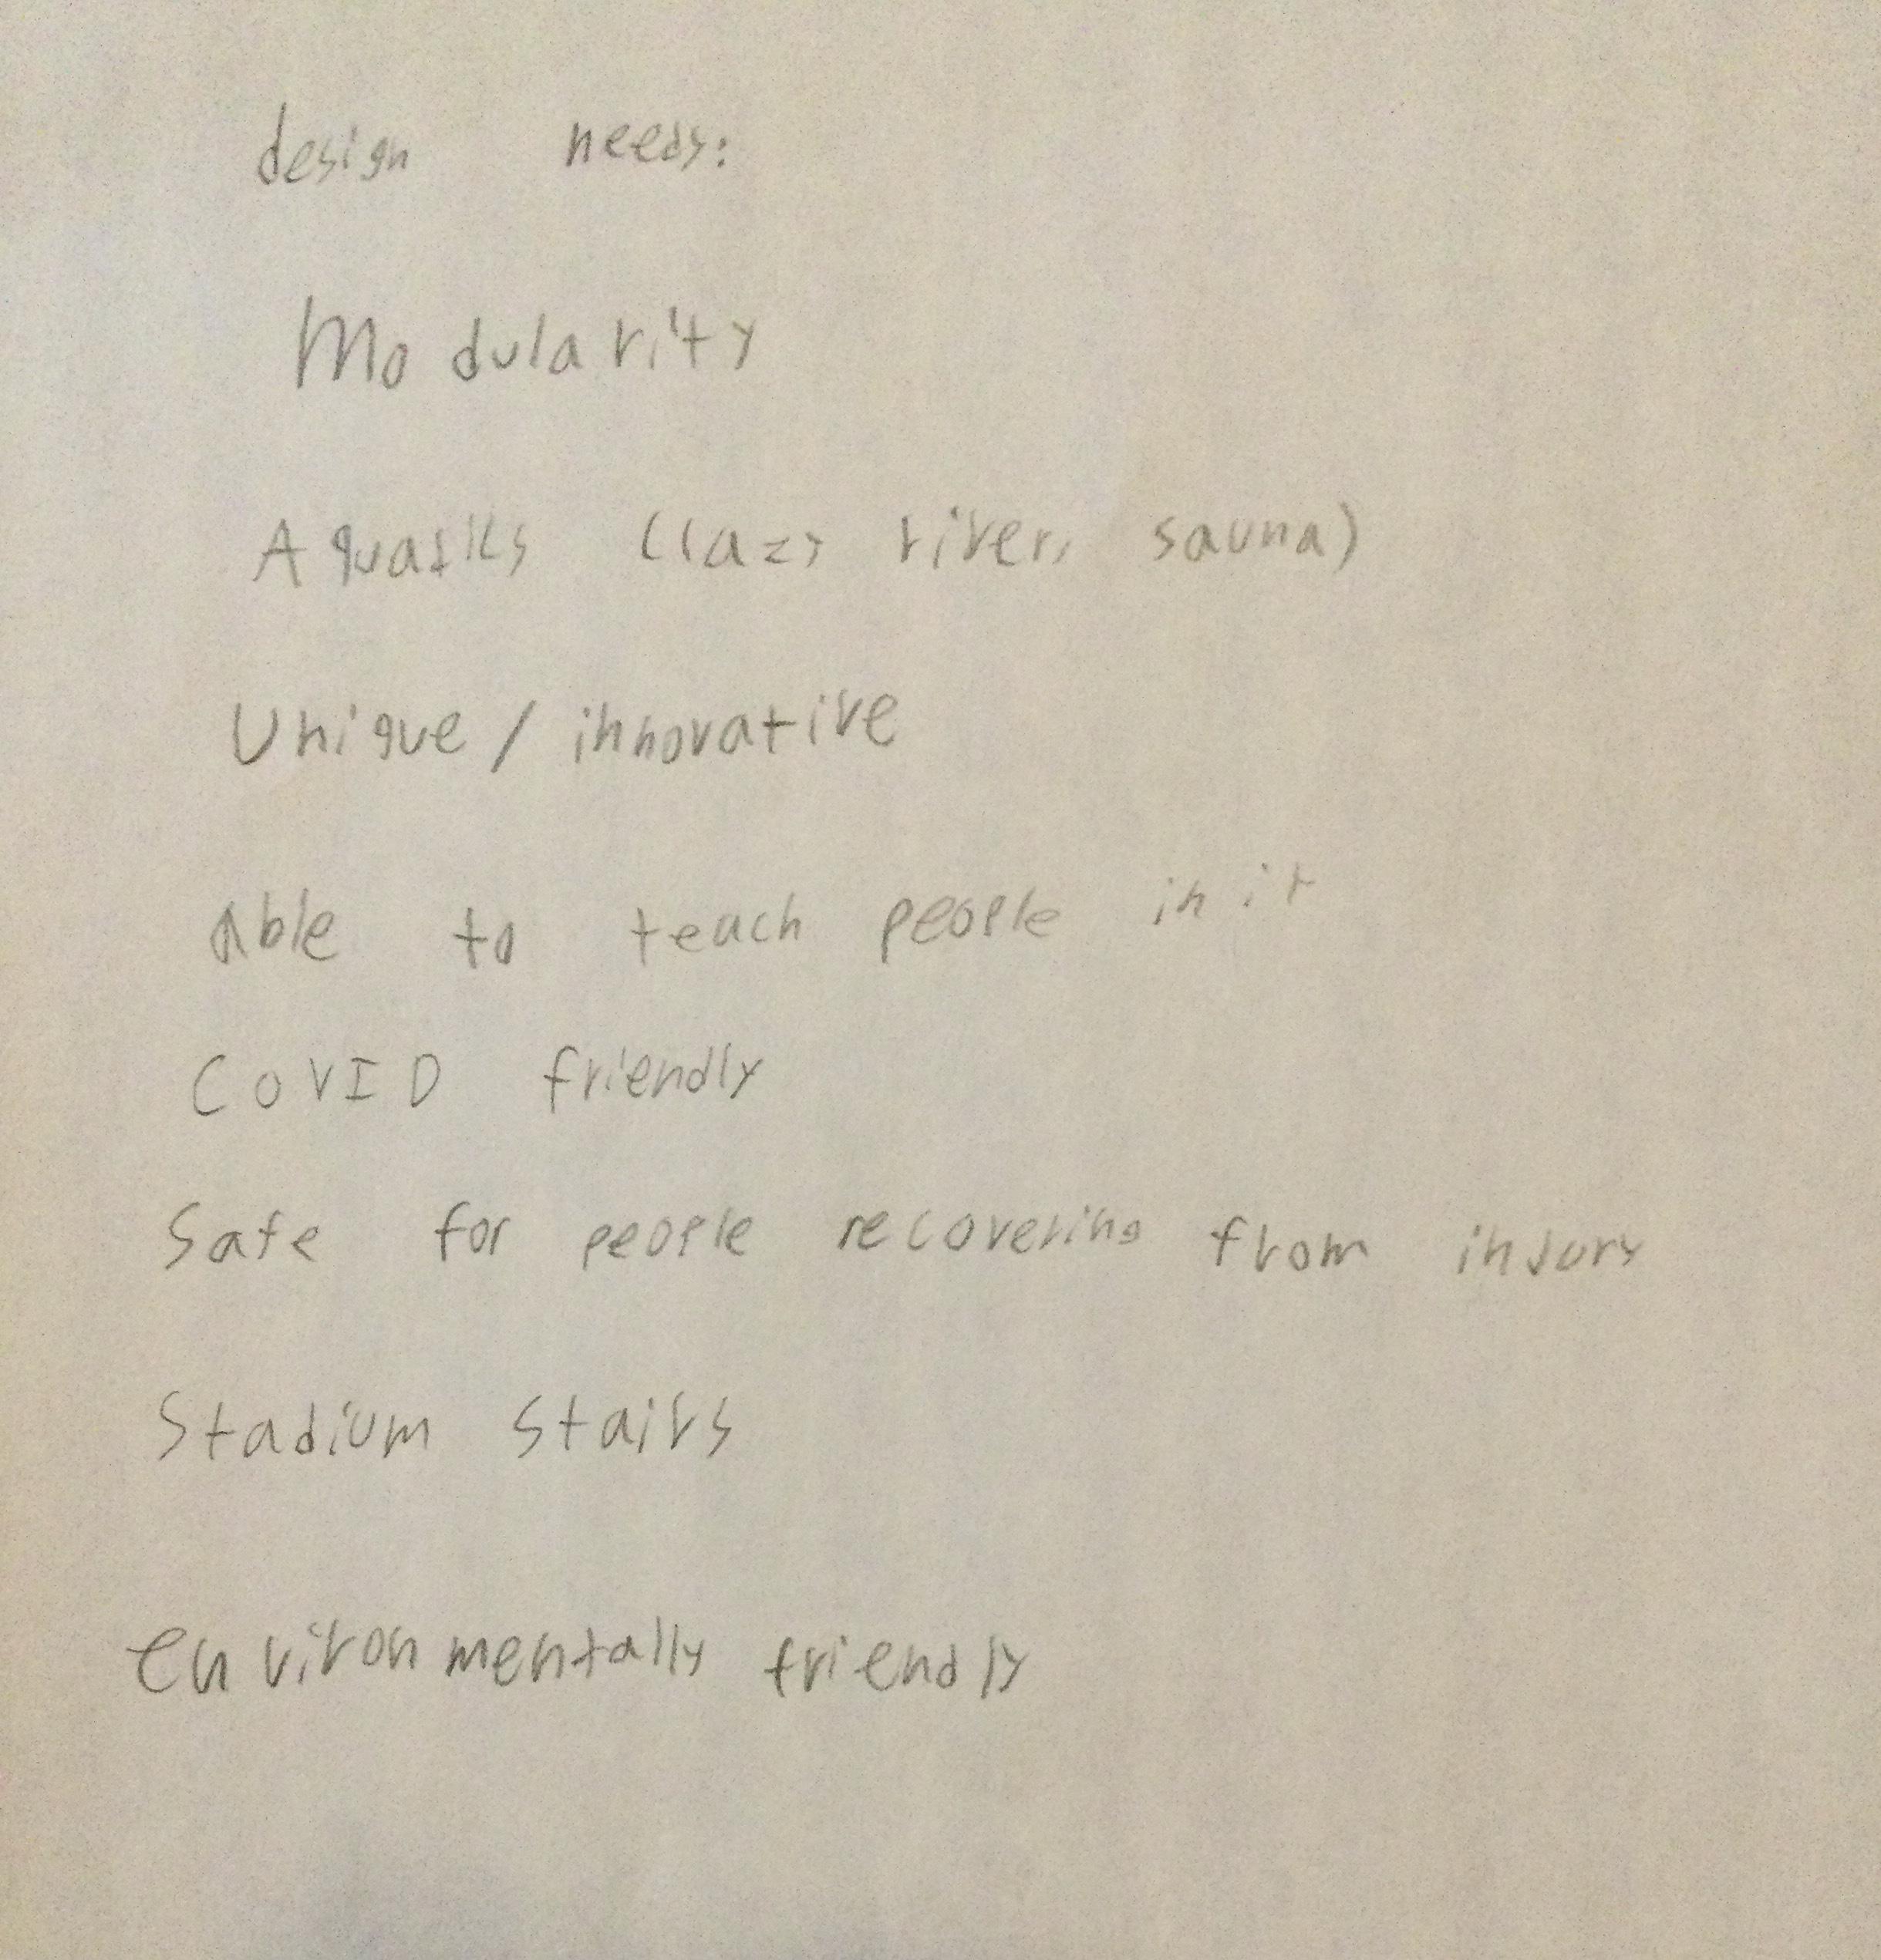 design needs:
Modularity
Aquatics (lazy river, sauna)
Unique / innovative
Able to teach people in it
COVID friendly
Safe for people recovering from injury
Stadium stairs
environmentally friendly